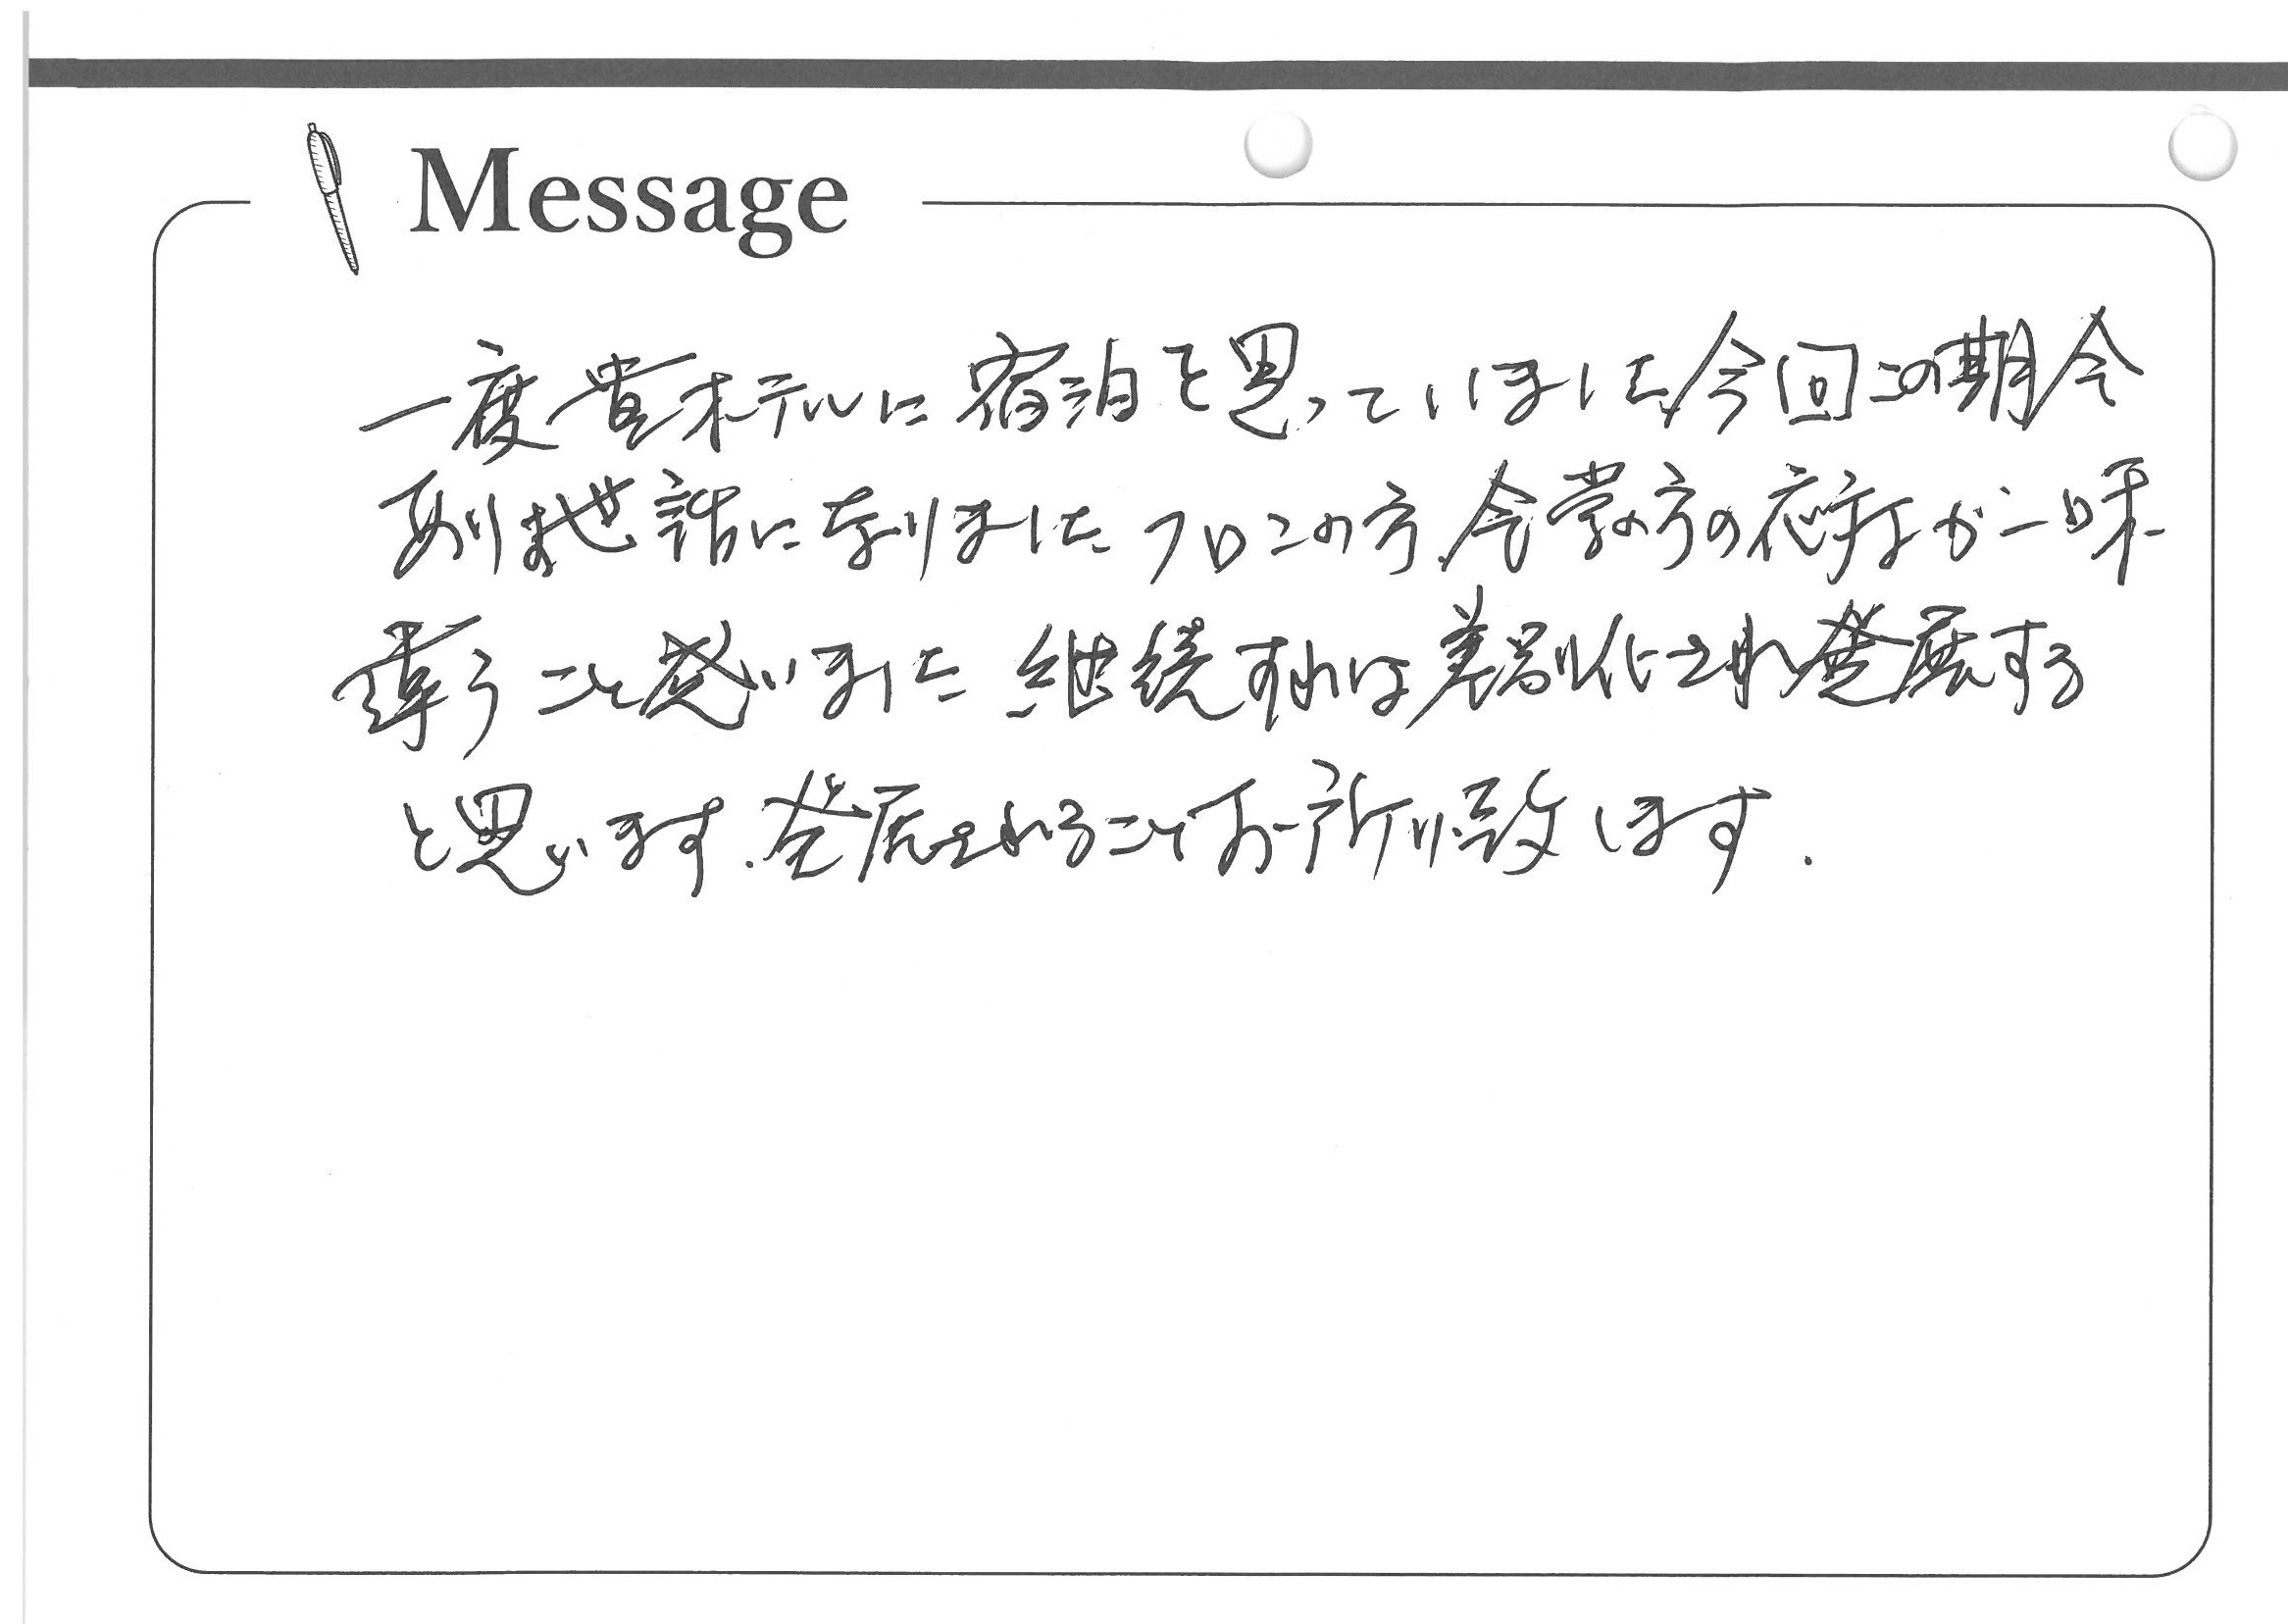 Message
一度貴ホテルに宿泊と思っていました今回この期会
あり お世話になりました フロンの方、食堂の方の応対が一味
違うこと感いました 継続すれば差別化され発展する
と思います.発展されることお祈り致します.